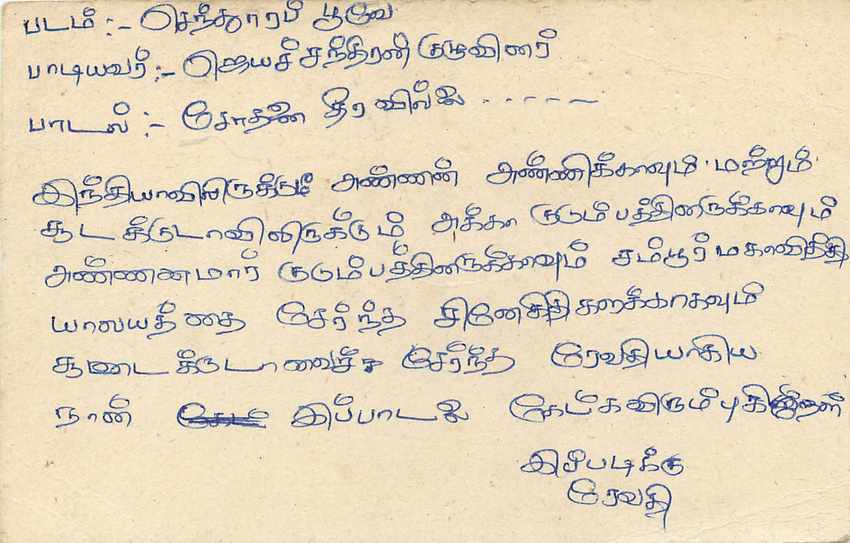 படம் :- செந்தூரப் பூவே
பாடியவர் :- ஜெயச்சந்திரன் குழுவினர்
பாடல் :- சோதனை தீரவில்லை - - - - -
இந்தியாவிலிருக்கும் அண்ணன் அண்ணிக்காவும் மற்றும்
அக்கா குடும்பத்தினருக்காவும்
அண்ணன்மார் குடும்பத்தினருக்காவும் சம்பூர் மகாவித்தி
யாலயத்தை சேர்ந்த சினேகிதிகளுக்காகவும்
சேர்ந்த ரேவதியாகிய
நான் இப்பாடலை கேட்கவிரும்புகிறேன்
இப்படிக்கு
ரேவதி